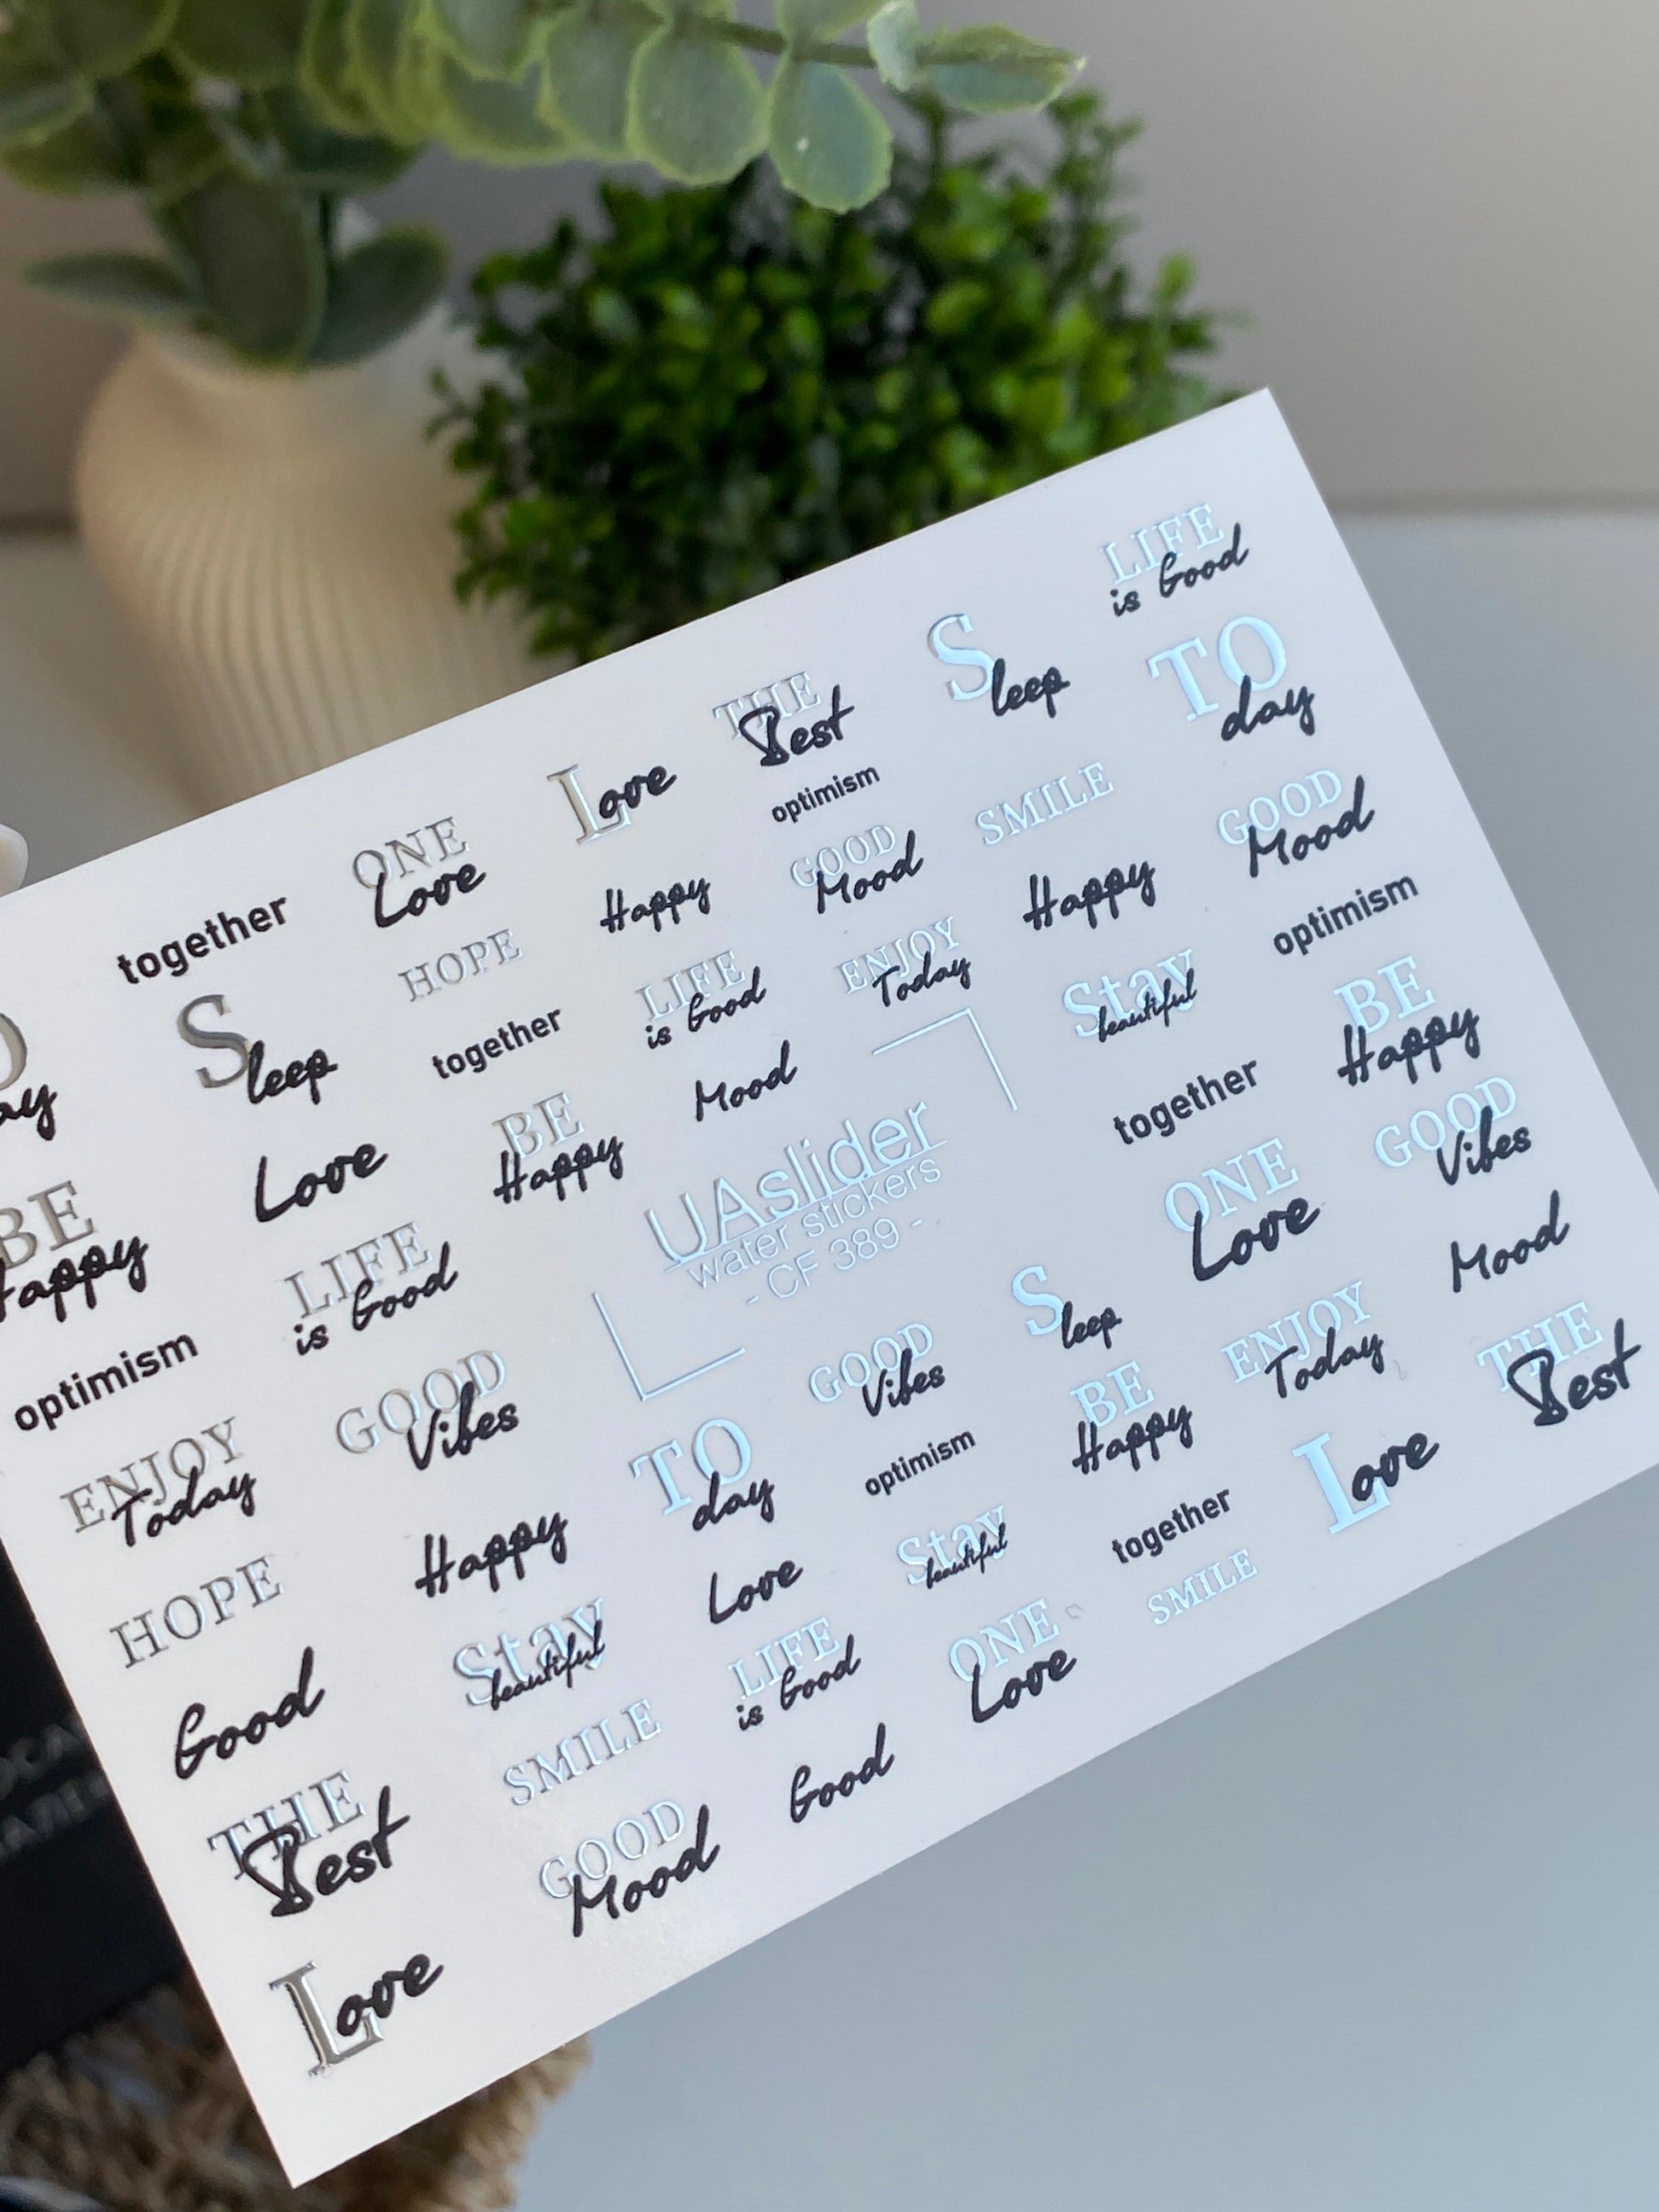 LIFE
is Good
THE
Best
Sleep
TO
day
Love
optimism
SMILE
GOOD
Mood
ONE
Love
Happy
GOOD
Mood
Happy
optimism
together
HOPE
LIFE
is Good
ENJOY
Today
Stay
beautiful
BE
Happy
Sleep
together
Mood
together
GOOD
Vibes
Love
BE
Happy
UAslider
water stickers
- CF 389 -
ONE
Love
Mood
BE
Happy
LIFE
is Good
Sleep
ENJOY
Today
THE
Best
optimism
GOOD
Vibes
GOOD
Vibes
BE
Happy
Love
ENJOY
Today
TO
day
optimism
together
HOPE
Happy
Love
Stay
beautiful
SMILE
Good
Stay
beautiful
LIFE
is Good
ONE
Love
THE
Best
SMILE
Good
GOOD
Mood
Love